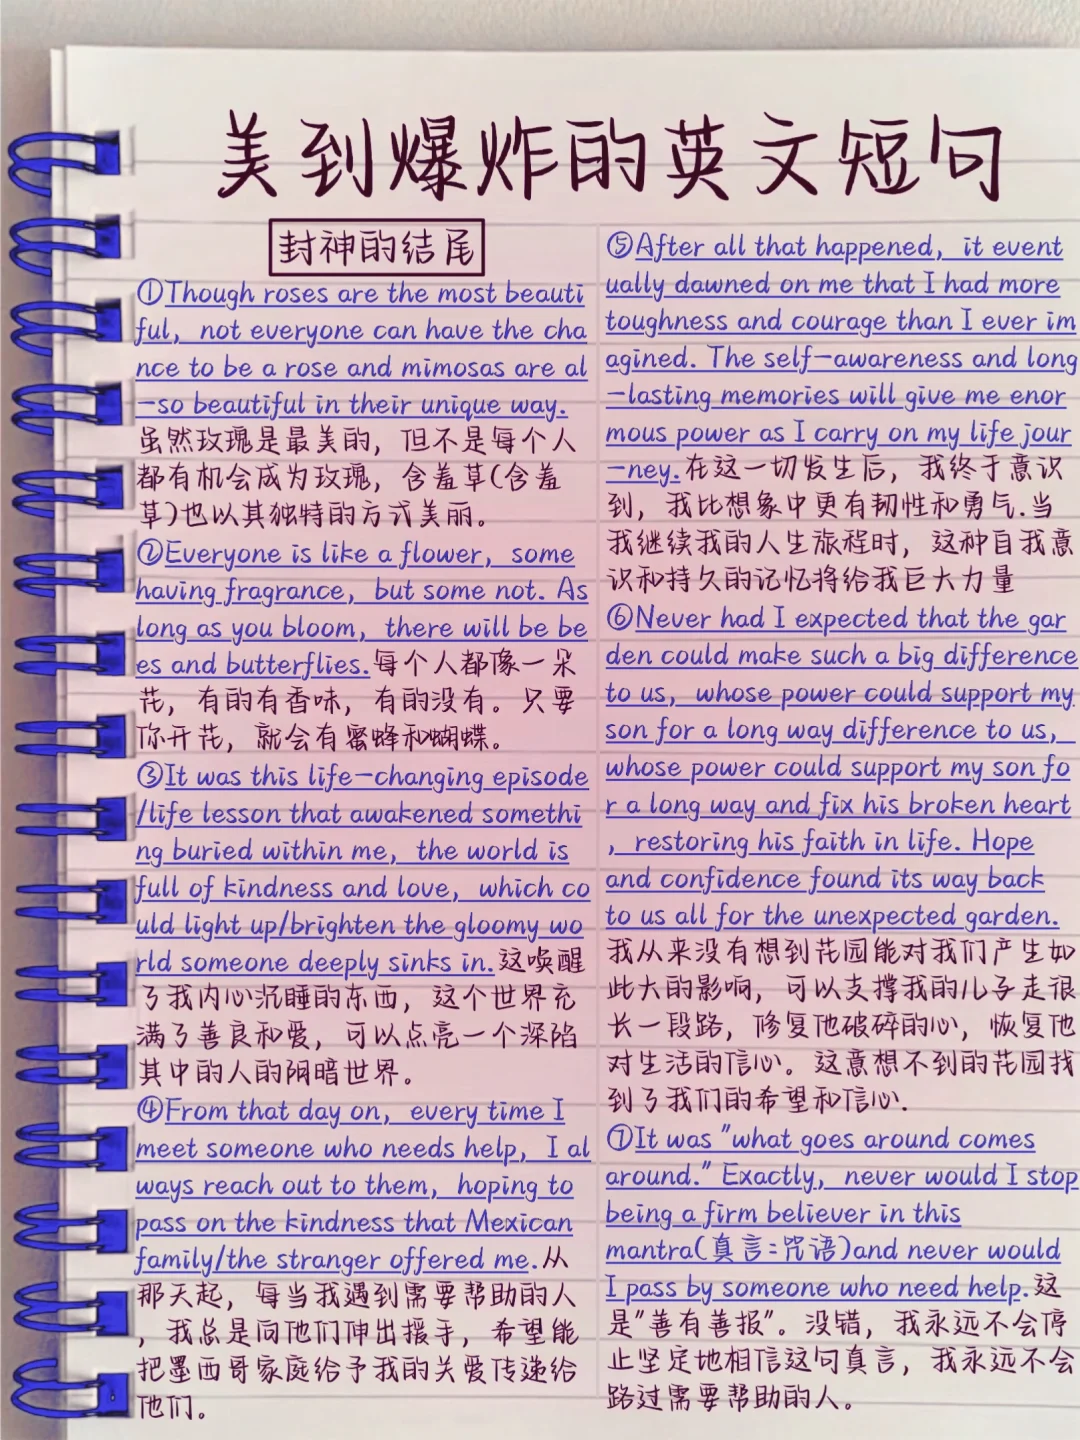 美到爆炸的英文短句
封神的结尾
①Though roses are the most beauti
ful, not everyone can have the cha
nce to be a rose and mimosas are al
-so beautiful in their unique way.
虽然玫瑰是最美的，但不是每个人
都有机会成为玫瑰，含羞草(含羞
草)也以其独特的方式美丽。
②Everyone is like a flower, some
having fragrance, but some not. As
long as you bloom, there will be be
es and butterflies.每个人都像一朵
花，有的有香味，有的没有。只要
你开花，就会有蜜蜂和蝴蝶。
③It was this life-changing episode
/life lesson that awakened somethi
ng buried within me, the world is
full of kindness and love, which co
uld light up/brighten the gloomy wo
rld someone deeply sinks in.这唤醒
了我内心沉睡的东西，这个世界充
满了善良和爱，可以点亮一个深陷
其中的人的阴暗世界。
④From that day on, every time I
meet someone who needs help, I al
ways reach out to them, hoping to
pass on the kindness that Mexican
family/the stranger offered me.从
那天起，每当我遇到需要帮助的人
，我总是向他们伸出援手，希望能
把墨西哥家庭给予我的关爱传递给
他们。
⑤After all that happened, it event
ually dawned on me that I had more
toughness and courage than I ever im
agined. The self-awareness and long
-lasting memories will give me enor
mous power as I carry on my life jour
-ney.在这一切发生后，我终于意识
到，我比想象中更有韧性和勇气.当
我继续我的人生旅程时，这种自我意
识和持久的记忆将给我巨大力量
⑥Never had I expected that the gar
den could make such a big difference
to us, whose power could support my
son for a long way difference to us,
whose power could support my son fo
r a long way and fix his broken heart
, restoring his faith in life. Hope
and confidence found its way back
to us all for the unexpected garden.
我从来没有想到花园能对我们产生如
此大的影响，可以支撑我的儿子走很
长一段路，修复他破碎的心，恢复他
对生活的信心。这意想不到的花园找
到了我们的希望和信心.
⑦It was "what goes around comes
around." Exactly, never would I stop
being a firm believer in this
mantra(真言:咒语)and never would
I pass by someone who need help.这
是"善有善报"。没错，我永远不会停
止坚定地相信这句真言，我永远不会
路过需要帮助的人。